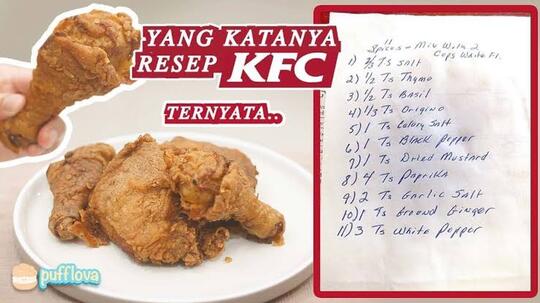 YANG KATANYA
RESEP KFC
TERNYATA..
pufflova
11
Spices - Mix With 2
Cups White Fl.
1) 2/3 Ts Salt
2) 1/2 Ts Thyme
3) 1/2 Ts Basil
4) 1/3 Ts Origino
5) 1 Ts Celery Salt
6) 1 Ts Black Pepper
7) 1 Ts Dried Mustard
8) 4 Ts Paprika
9) 2 Ts Garlic Salt
10) 1 Ts Ground Ginger
11) 3 Ts White Pepper